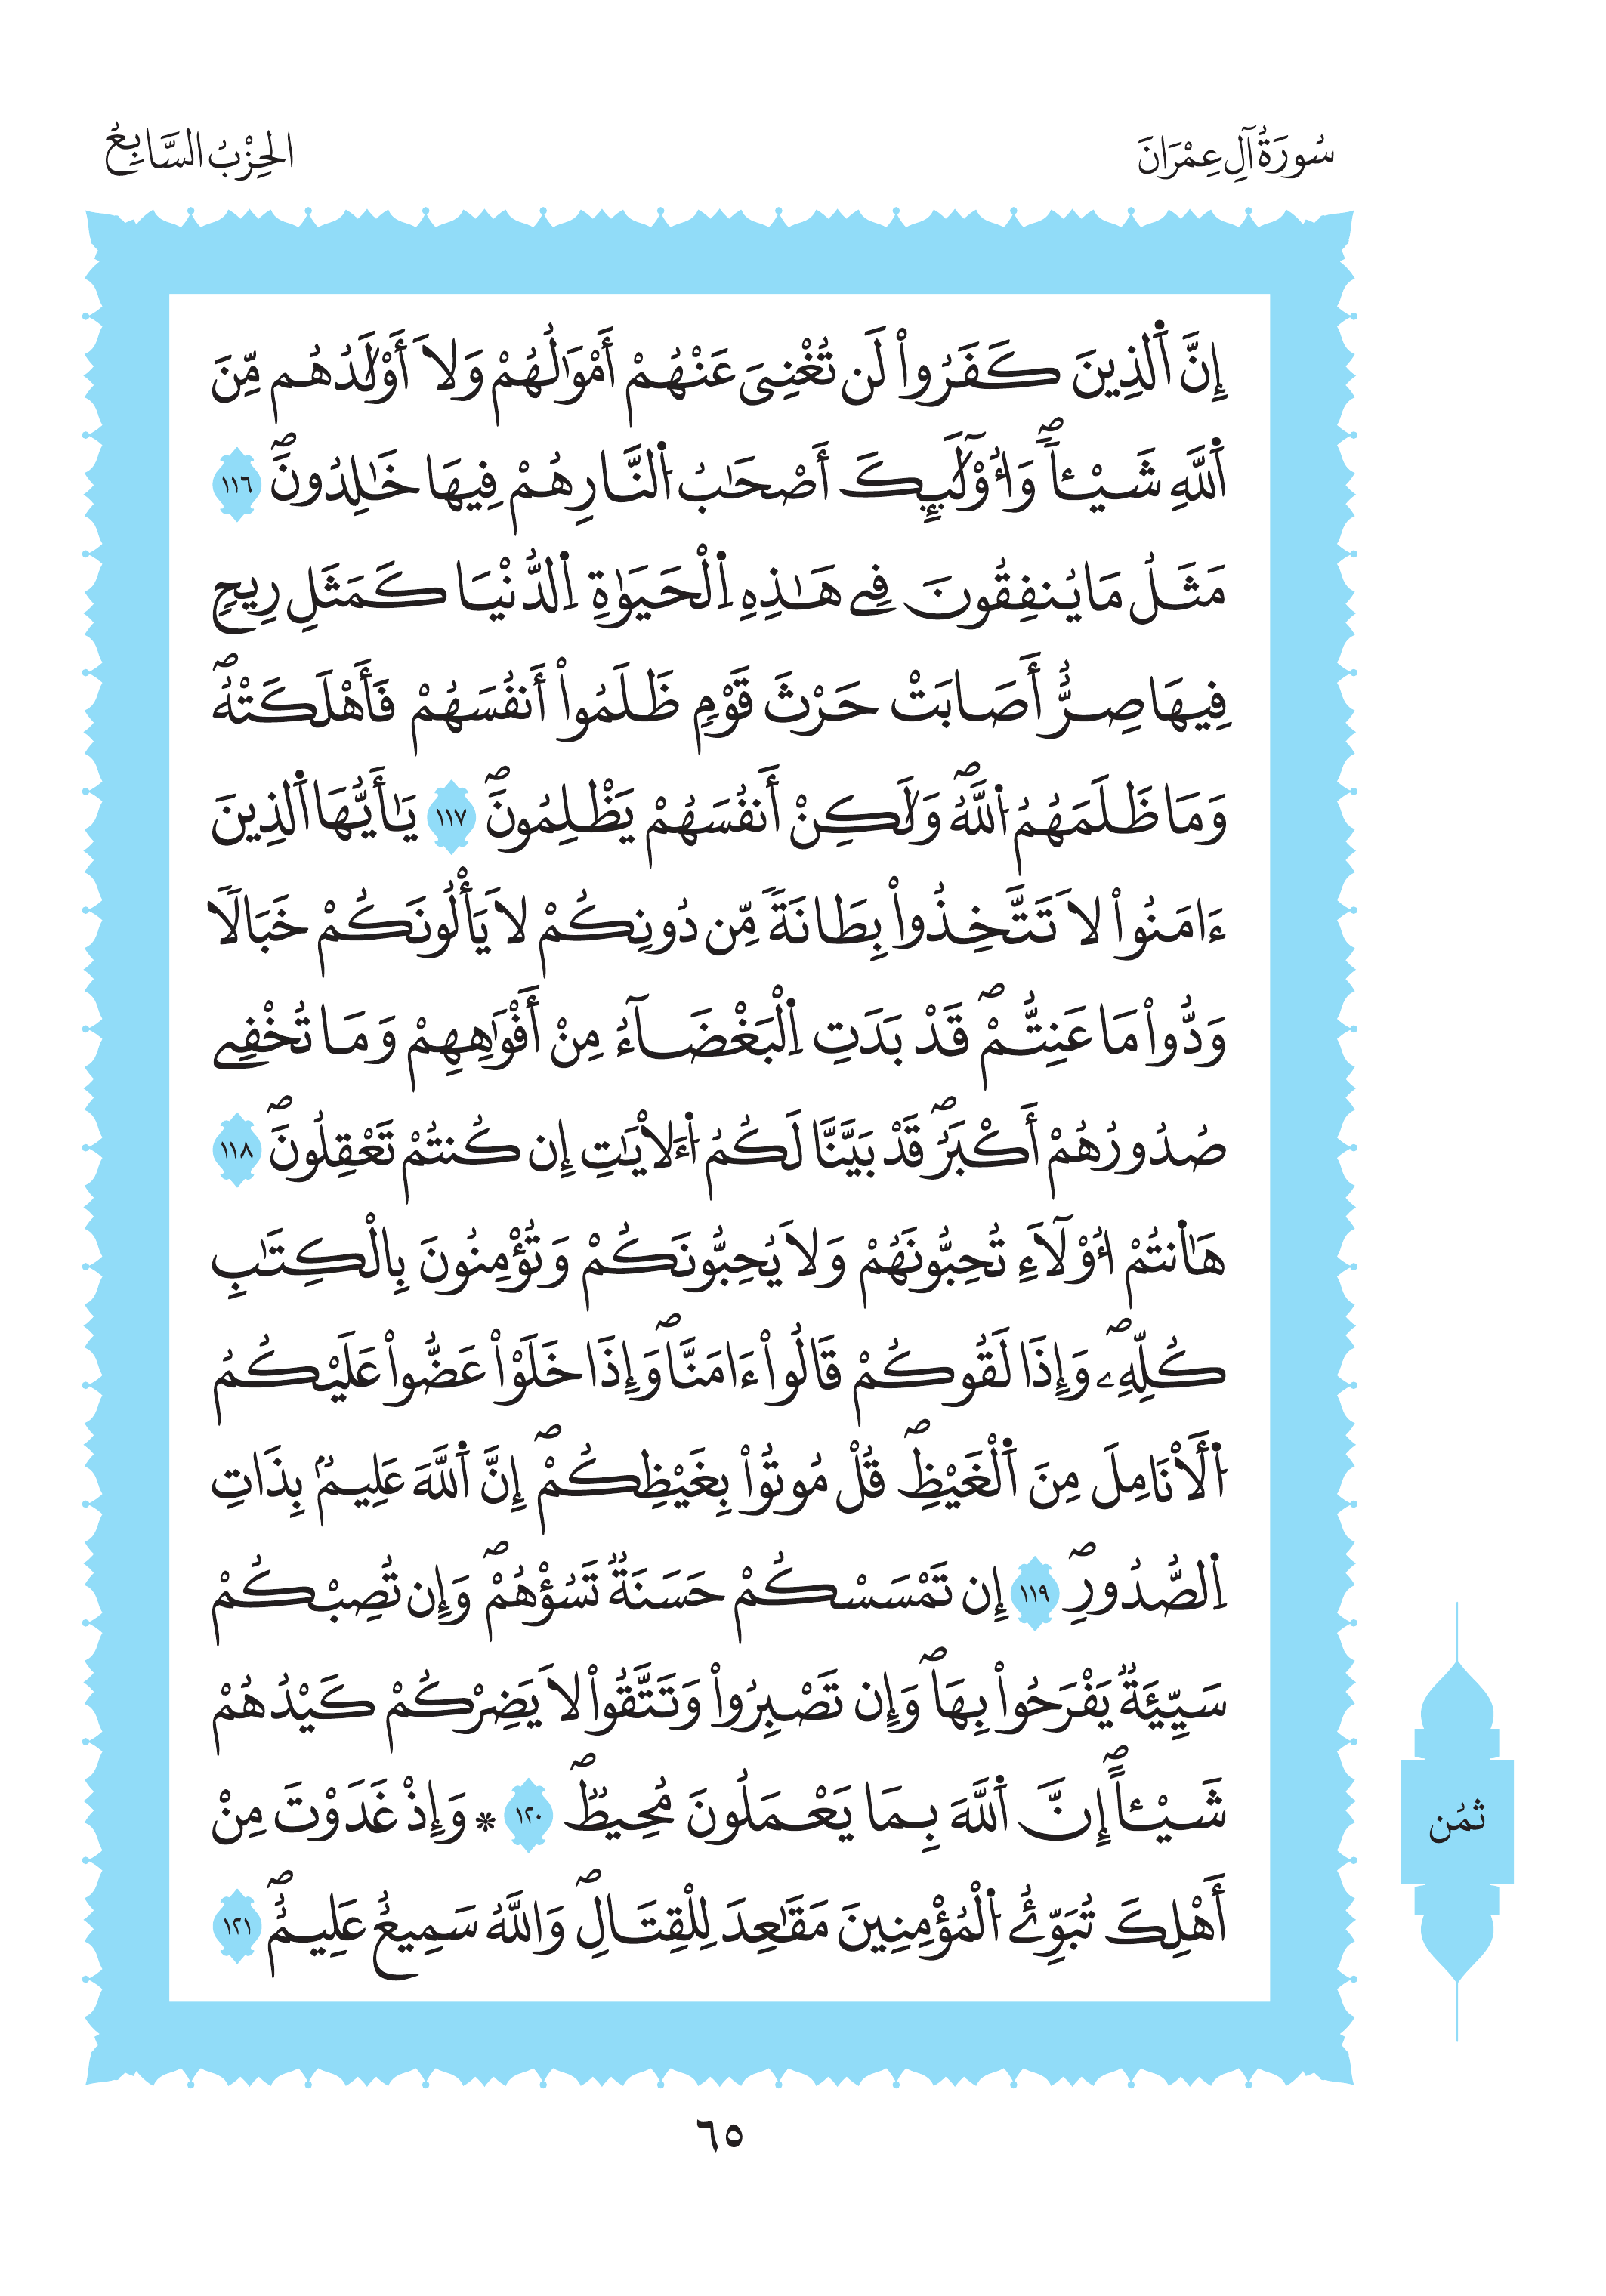 سُورَةُ آلِ عِمْرَانَ
الحِزْبُ السَّابِعُ
إِنَّ اَ۬لذِينَ كَفَرُواْ لَن تُغْنِىَ عَنْهُمْ أَمْوَٰلُهُمْ وَلَا أَوْلَٰدُهُم مِّنَ
اَ۬للَّهِ شَيْـٔاًۖ وَأُوْلَٰٓئِكَ أَصْحَٰبُ اُ۬لنَّارِ هُمْ فِيهَا خَٰلِدُونَۖ ١١٦
مَثَلُ مَا يُنفِقُونَ فِے هَٰذِهِ اِ۬لْحَيَوٰةِ اِ۬لدُّنْيَا كَمَثَلِ رِيحٖ
فِيهَا صِرٌّ أَصَابَتْ حَرْثَ قَوْمٖ ظَلَمُواْ أَنفُسَهُمْ فَأَهْلَكَتْهُۖ
وَمَا ظَلَمَهُمُ اُ۬للَّهُۖ وَلَٰكِنْ أَنفُسَهُمْ يَظْلِمُونَۖ ١١٧ يَٰأَيُّهَا اَ۬لذِينَ
ءَامَنُواْ لَا تَتَّخِذُواْ بِطَانَةٗ مِّن دُونِكُمْ لَا يَأْلُونَكُمْ خَبَالٗا
وَدُّواْ مَا عَنِتُّمْۖ قَدْ بَدَتِ اِ۬لْبَغْضَآءُ مِنْ أَفْوَٰهِهِمْ وَمَا تُخْفِے
صُدُورُهُمْ أَكْبَرُۖ قَدْ بَيَّنَّا لَكُمُ اُ۬لَأيَٰتِ إِن كُنتُمْ تَعْقِلُونَۖ ١١٨
هَٰاَنتُمْ أُوْلَآءِ تُحِبُّونَهُمْ وَلَا يُحِبُّونَكُمْ وَتُؤْمِنُونَ بِالْكِتَٰبِ
كُلِّهِۦۖ وَإِذَا لَقُوكُمْ قَالُواْ ءَامَنَّاۖ وَإِذَا خَلَوْاْ عَضُّواْ عَلَيْكُمُ
اُ۬لْأَنَامِلَ مِنَ اَ۬لْغَيْظِۖ قُلْ مُوتُواْ بِغَيْظِكُمْۖ إِنَّ اَ۬للَّهَ عَلِيمُۢ بِذَاتِ
اِ۬لصُّدُورِۖ ١١٩ إِن تَمْسَسْكُمْ حَسَنَةٌ تَسُؤْهُمْۖ وَإِن تُصِبْكُمْ
سَيِّئَةٌ يَفْرَحُواْ بِهَاۖ وَإِن تَصْبِرُواْ وَتَتَّقُواْ لَا يَضِرْكُمْ كَيْدُهُمْ
شَيْـٔاًۖ إِنَّ اَ۬للَّهَ بِمَا يَعْمَلُونَ مُحِيطٌۖ ١٢٠ * وَإِذْ غَدَوْتَ مِنْ
أَهْلِكَ تُبَوِّئُ اُ۬لْمُؤْمِنِينَ مَقَٰعِدَ لِلْقِتَالِۖ وَاللَّهُ سَمِيعٌ عَلِيمٌۖ ١٢١
ثمُن
٦٥